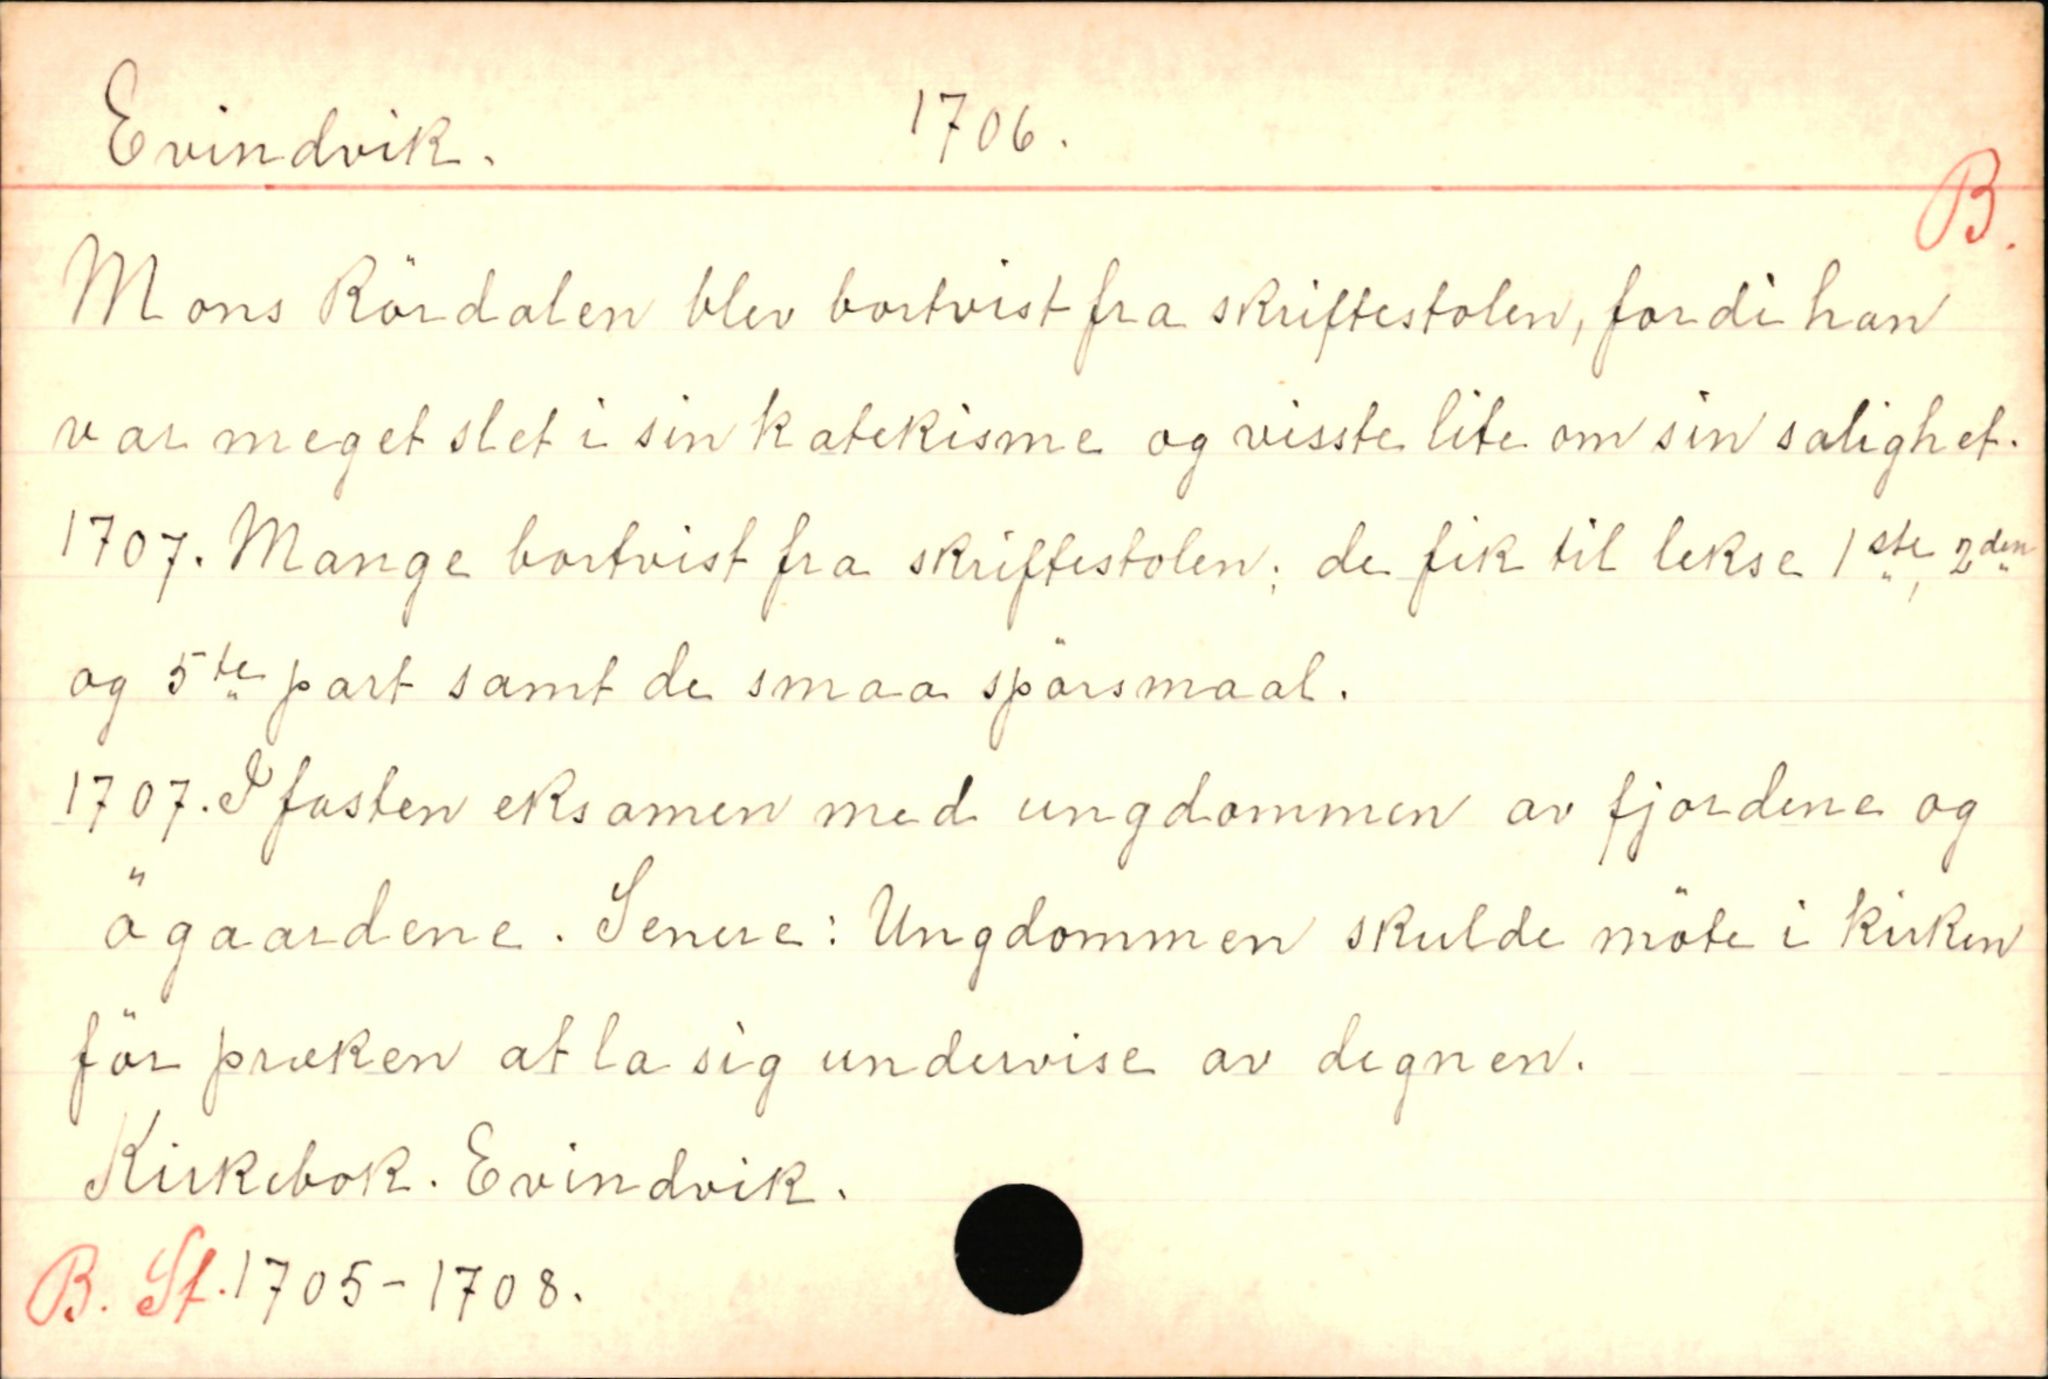 Evindvik. 1706.
B.
Mons Rördalen blev bortvist fra skriftestolen, fordi han
var meget slet i sin katekisme og visste lite om sin salighet.
1707. Mange bortvist fra skriftestolen; de fik til lekse 1ste, 2den
og 5te part samt de smaa spörsmaal.
1707. I fasten eksamen med ungdommen av fjordene og
ögaardene. Senere: Ungdommen skulde möte i kirken
för præken at la sig undervise av degnen.
Kirkebok. Evindvik.
B. St. 1705-1708.